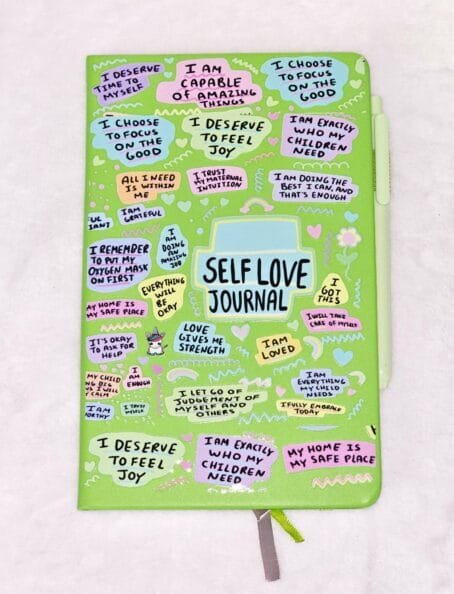 I DESERVE
TIME TO
MYSELF
I AM
CAPABLE
OF AMAZING
THINGS
I CHOOSE
TO FOCUS
ON THE
GOOD
I CHOOSE
TO FOCUS
ON THE
GOOD
I DESERVE
TO FEEL
JOY
I AM EXACTLY
WHO MY
CHILDREN
NEED
ALL I NEED
IS WITHIN
ME
I TRUST
MY MATERNAL
INTUITION
I AM DOING THE
BEST I CAN, AND
THAT'S ENOUGH
I AM
GRATEFUL
I REMEMBER
TO PUT MY
OXYGEN MASK
ON FIRST
I
AM
DOING
AN
AMAZING
JOB
SELF LOVE
JOURNAL
EVERYTHING
WILL
BE
OKAY
I
GOT
THIS
MY HOME IS
MY SAFE PLACE
I WILL TAKE
CARE OF MYSELF
IT'S OKAY
TO ASK FOR
HELP
LOVE
GIVES ME
STRENGTH
I AM
LOVED
MY CHILD
I WILL
CALM
I AM
ENOUGH
I AM
EVERYTHING
MY CHILD
NEEDS
I LET GO OF
JUDGEMENT OF
MYSELF AND
OTHERS
I AM
I TRUST
MYSELF
I FULLY EMBRACE
TODAY
I DESERVE
TO FEEL
JOY
I AM EXACTLY
WHO MY
CHILDREN
NEED
MY HOME IS
MY SAFE PLACE